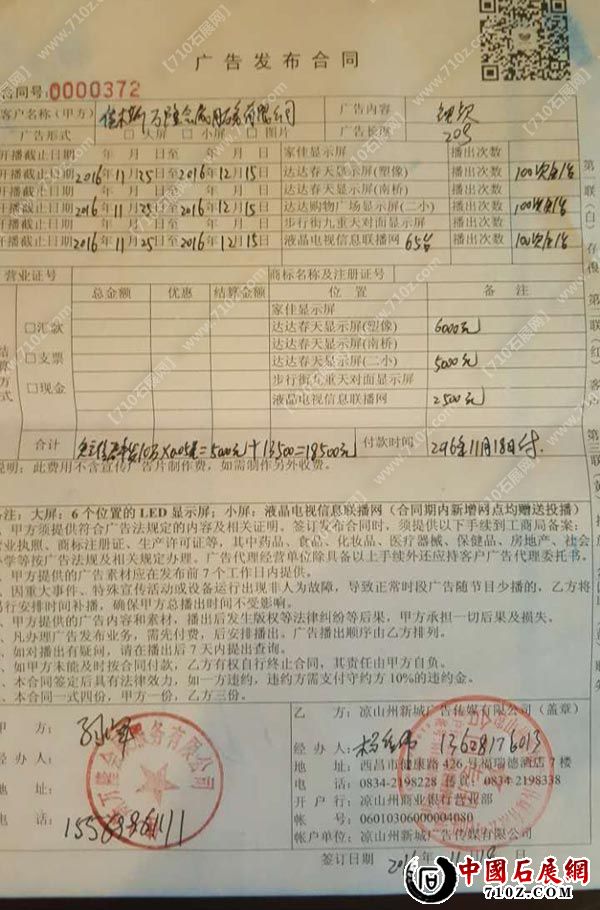 广告发布合同
合同号:0000372
客户名称（甲方） 万隆会展服务有限公司 广告内容
广告形式 □大屏 □小屏 □图片 广告长度 20S
开播截止日期 年 月 日至 年 月 日 家佳显示屏 播出次数
开播截止日期 2016年11月25日至2016年12月15日 达达春天显示屏(塑像) 播出次数 100次每/台
开播截止日期 年 月 日至 年 月 日 达达春天显示屏(南桥) 播出次数
开播截止日期 2016年11月25日至2016年12月15日 达达购物广场显示屏(二小) 播出次数 100次每/台
开播截止日期 年 月 日至 年 月 日 步行街九重天对面显示屏 播出次数
开播截止日期 2016年11月25日至2016年12月15日 液晶电视信息联播网 65台 播出次数 100次每/台
营业证号 商标名称及注册证号
总金额 优惠 结算金额 位置 备注
结算方式
□汇款
□支票
□现金
家佳显示屏
达达春天显示屏(塑像) 6000元
达达春天显示屏(南桥)
达达春天显示屏(二小) 5000元
步行街九重天对面显示屏
液晶电视信息联播网 2500元
合计 10万×0.05=5000元+13500=18500元 付款时间 2016年11月18日付
说明：此费用不含宣传广告片制作费，如需制作另外收费。
备注：大屏：6个位置的LED显示屏；小屏：液晶电视信息联播网（合同期内新增网点均赠送投播）
甲方须提供符合广告法规定的内容及相关证明。签订发布合同时，须提供以下手续到工商局备案：
营业执照、商标注册证、生产许可证等，其中药品、食品、化妆品、医疗器械、保健品、房地产、社会
办学等按广告法规及相关规定办理。广告代理经营单位除具备以上手续外还应持客户广告代理委托书。
甲方提供的广告素材应在发布前7个工作日内提供。
因重大事件、特殊宣传活动或设备运行出现非人为故障，导致正常时段广告随节目少播的，乙方将
另行安排时间补播，确保甲方总播出时间不受影响。
甲方提供的广告内容和素材，播出后发生版权等法律纠纷等后果，甲方承担一切后果及损失。
凡办理广告发布业务，需先付费，后安排播出。广告播出顺序由乙方排列。
如对播出有疑问，请在播出后7天内提出查询。
如甲方未能及时按合同付款，乙方有权自行终止合同，其责任由甲方自负。
本合同签定后具有法律效力，如一方违约，违约方需支付守约方10%的违约金。
本合同一式四份，甲方一份，乙方三份。
甲方： 乙方：凉山州新城广告传媒有限公司（盖章）
经办人： 经办人： 13628176013
地址： 地址：西昌市健康路426号福瑞德酒店7楼
电话： 电话：0834-2198228 传真：0834-2198338
开户行：凉山州商业银行营业部
帐号：06010306000004080
帐户单位：凉山州新城广告传媒有限公司
签订日期 2016年11月18日
中國石展網
710Z.COM
www.710z.com【710石展网】